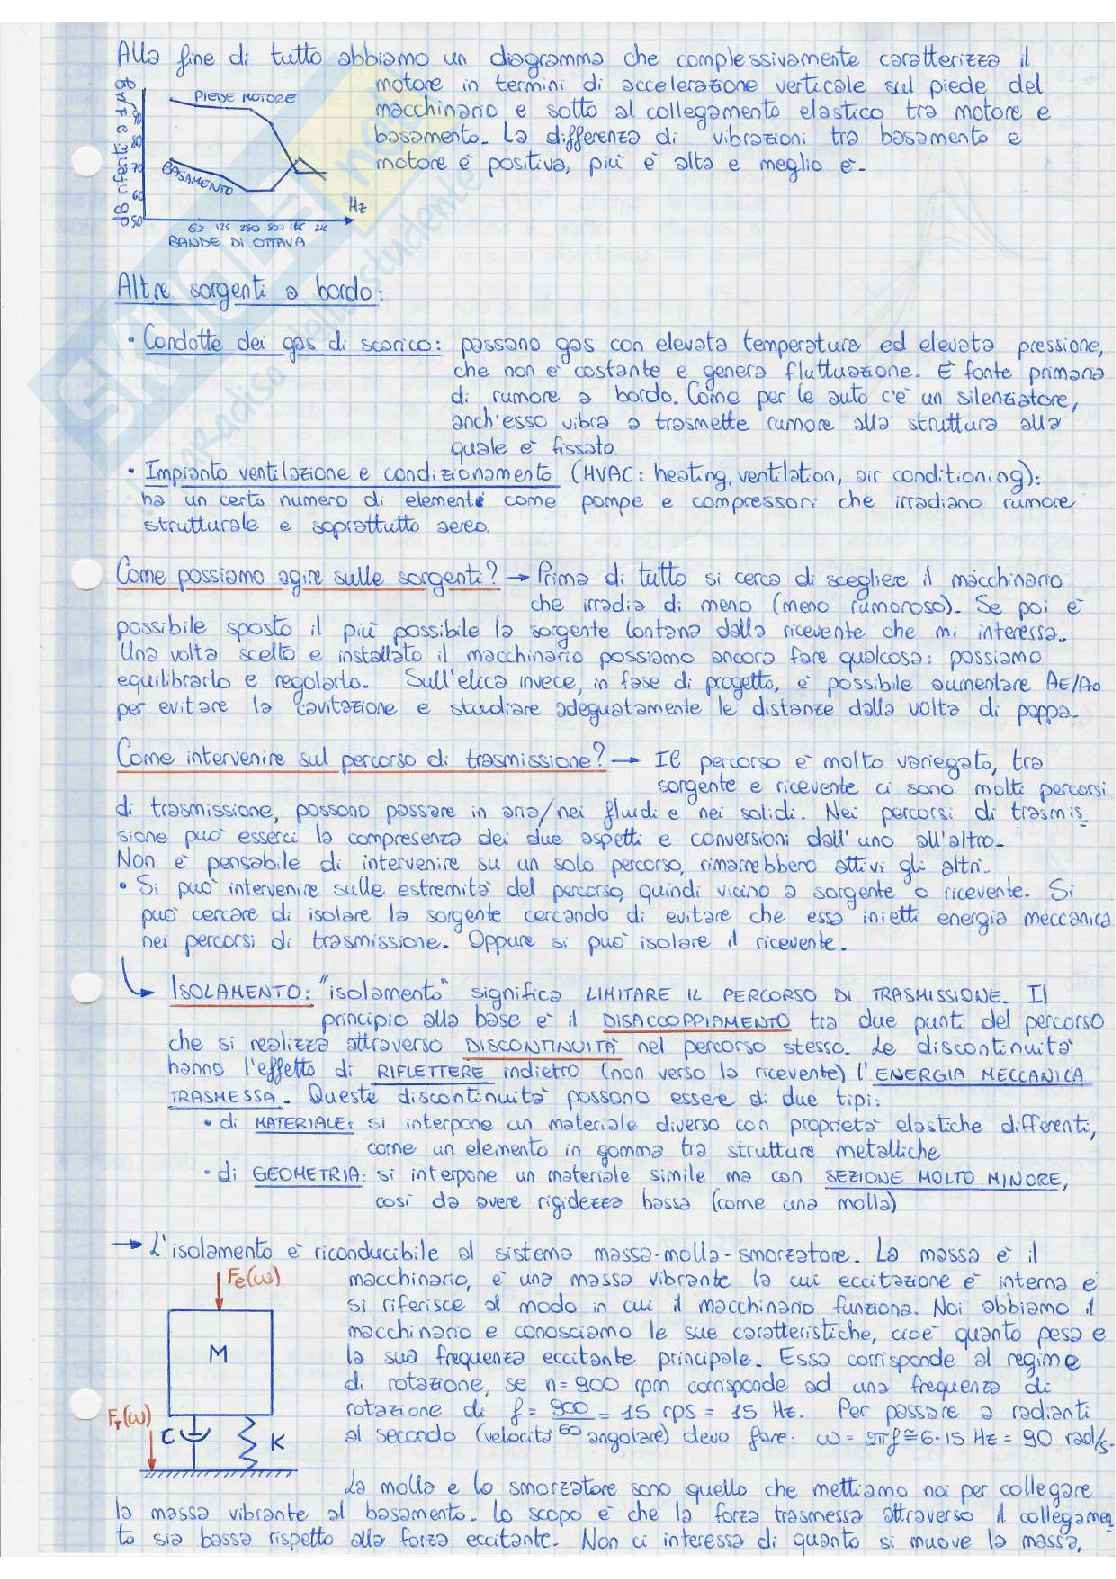 Alla fine di tutto abbiamo un diagramma che complessivamente caratterizza il
motore in termini di accelerazione verticale sul piede del
macchinario e sotto al collegamento elastico tra motore e
basamento. La differenza di vibrazioni tra basamento e
motore è positiva, più è alta e meglio è.
PIEDE MOTORE
BASAMENTO
80
70
60
50
Hz
63 125 250 500 1K 2K
BANDE DI OTTAVA
Altre sorgenti a bordo:
• Condotte dei gas di scarico: passano gas con elevata temperatura ed elevata pressione,
che non è costante e genera fluttuazione. È fonte primaria
di rumore a bordo. Come per le auto c'è un silenziatore,
anch'esso vibra a trasmette rumore alla struttura alla
quale è fissato
• Impianto ventilazione e condizionamento (HVAC: heating, ventilation, air conditioning):
ha un certo numero di elementi come pompe e compressori che irradiano rumore
strutturale e soprattutto aereo.
Come possiamo agire sulle sorgenti? → Prima di tutto si cerca di scegliere il macchinario
che irradia di meno (meno rumoroso). Se poi è
possibile sposto il più possibile la sorgente lontana dalla ricevente che mi interessa.
Una volta scelto e installato il macchinario possiamo ancora fare qualcosa: possiamo
equilibrarlo e regolarlo. Sull'elica invece, in fase di progetto, è possibile aumentare AE/A0
per evitare la cavitazione e studiare adeguatamente le distanze dalla volta di poppa.
Come intervenire sul percorso di trasmissione? → Il percorso è molto variegato, tra
sorgente e ricevente ci sono molti percorsi
di trasmissione, possono passare in aria/nei fluidi e nei solidi. Nei percorsi di trasmis
sione può esserci la compresenza dei due aspetti e conversioni dall'uno all'altro.
Non è pensabile di intervenire su un solo percorso, rimarrebbero attivi gli altri.
• Si può intervenire sulle estremità del percorso, quindi vicino a sorgente o ricevente. Si
può cercare di isolare la sorgente cercando di evitare che essa inietti energia meccanica
nei percorsi di trasmissione. Oppure si può isolare il ricevente.
↳ ISOLAMENTO: "isolamento" significa LIMITARE IL PERCORSO DI TRASMISSIONE. Il
principio alla base è il DISACCOPPIAMENTO tra due punti del percorso
che si realizza attraverso DISCONTINUITÀ nel percorso stesso. Le discontinuità
hanno l'effetto di RIFLETTERE indietro (non verso la ricevente) l'ENERGIA MECCANICA
TRASMESSA. Queste discontinuità possono essere di due tipi:
• di MATERIALE: si interpone un materiale diverso con proprietà elastiche differenti,
come un elemento in gomma tra strutture metalliche
- di GEOMETRIA: si interpone un materiale simile ma con SEZIONE MOLTO MINORE,
così da avere rigidezza bassa (come una molla)
→ L'isolamento è riconducibile al sistema massa-molla-smorzatore. La massa è il
macchinario, è una massa vibrante la cui eccitazione è interna e
si riferisce al modo in cui il macchinario funziona. Noi abbiamo il
macchinario e conosciamo le sue caratteristiche, cioè quanto pesa e
la sua frequenza eccitante principale. Essa corrisponde al regime
di rotazione, se n=900 rpm corrisponde ad una frequenza di
rotazione di f = 900/60 = 15 rps = 15 Hz. Per passare a radianti
al secondo (velocità angolare) devo fare: ω = 2πf ≅ 6·15 Hz = 90 rad/s.
Fe(ω)
M
FT(ω)
C
K
La molla e lo smorzatore sono quello che mettiamo noi per collegare
la massa vibrante al basamento. Lo scopo è che la forza trasmessa attraverso il collegamen
to sia bassa rispetto alla forza eccitante. Non ci interessa di quanto si muove la massa,